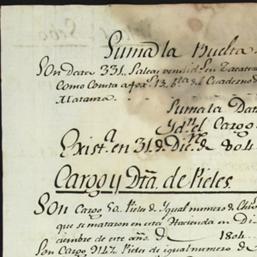 Suma la Buelta
Son Data 331. Pieles vendid.s en Zacatecas
Como Consta a fox.s 13. bta del Cuaderno de
Matanza.
Suma la Data
Yd.m el Cargo
Exist.a en 31,, de Dic.re de 804
Cargo y Dta. de Pieles.
Son Cargo 50. Pieles de Ygual numero de
que se mataron en esta Hacienda en Di-
ciembre de este año de 1804
Son Cargo 9147. Pieles de igual numero de